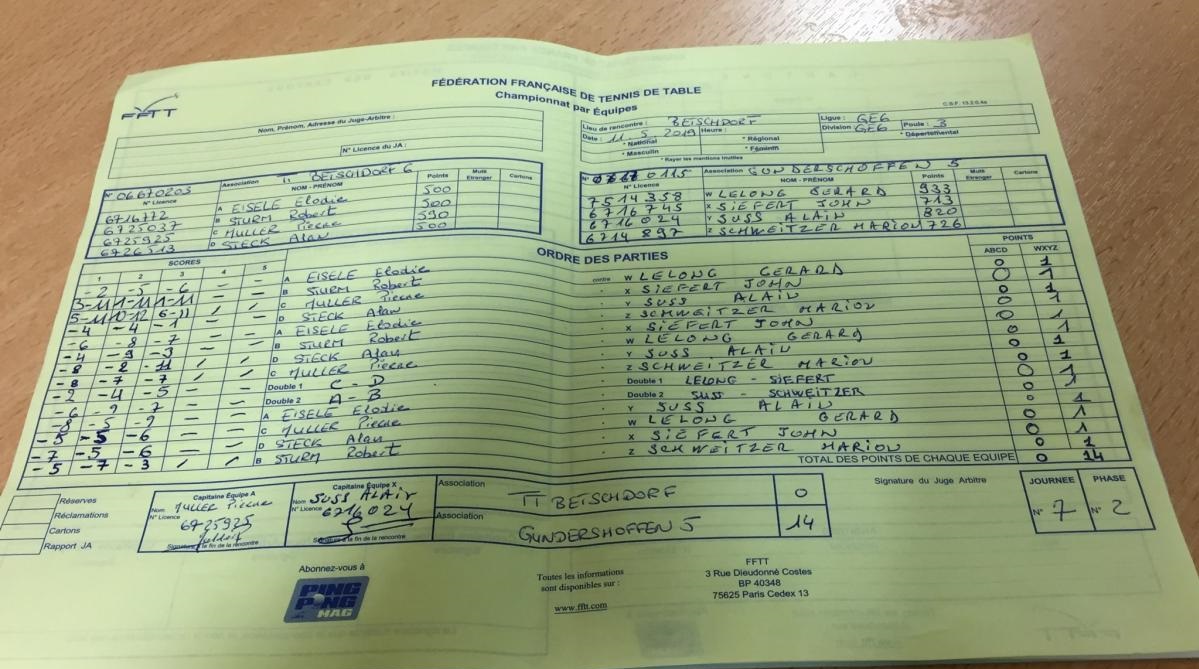 FÉDÉRATION FRANÇAISE DE TENNIS DE TABLE
Championnat par Équipes
FFTT
C.S.F. 13.2.0.4a
Nom, Prénom, Adresse du Juge-Arbitre :
N° Licence du JA :
Lieu de rencontre : BETSCHDORF Ligue : GE6
Date : 11.5.2019 Heure : Division GE6 Poule : 3
* National * Régional * Départemental
* Masculin * Féminin
* Rayer les mentions inutiles
N° 06670203 Association TT BETSCHDORF 6
N° Licence NOM - PRÉNOM Points Muté Etranger Cartons
6716772 A EISELE Elodie 500
6725037 B STURM Robert 500
6725925 C MULLER Pierre 590
6726513 D STECK Alan 500
N° 07670115 Association GUNDERSHOFFEN 5
N° Licence NOM - PRÉNOM Points Muté Etranger Cartons
7514358 W LELONG GERARD 933
6716745 X SIEFERT JOHN 713
6716024 Y SUSS ALAIN 820
6714897 Z SCHWEITZER MARION 726
ORDRE DES PARTIES
SCORES POINTS
1 2 3 4 5 ABCD WXYZ
-2 -5 -6 — — A EISELE Elodie contre W LELONG GERARD 0 1
3-11 1-11 1-11 — — B STURM Robert X SIEFERT JOHN 0 1
5-11 10-12 6-11 / / C MULLER Pierre Y SUSS ALAIN 0 1
-4 -4 -1 — — D STECK Alan Z SCHWEITZER MARION 0 1
-6 -8 -7 — — A EISELE Elodie X SIEFERT JOHN 0 1
-4 -9 -3 — — B STURM Robert W LELONG GERARD 0 1
-8 -2 -11 / / D STECK Alan Y SUSS ALAIN 0 1
-8 -7 -7 / / C MULLER Pierre Z SCHWEITZER MARION 0 1
-2 -4 -5 — — Double 1 C-D Double 1 LELONG - SIEFERT 0 1
-6 -9 -7 — — Double 2 A-B Double 2 SUSS - SCHWEITZER 0 1
-8 -5 -9 — — A EISELE Elodie Y SUSS ALAIN 0 1
-5 -5 -6 — — C MULLER Pierre W LELONG GERARD 0 1
-7 -5 -6 — — D STECK Alan X SIEFERT JOHN 0 1
-5 -7 -3 / / B STURM Robert Z SCHWEITZER MARION 0 1
TOTAL DES POINTS DE CHAQUE EQUIPE 0 14
Réserves
Réclamations
Cartons
Rapport JA
Capitaine Équipe A
Nom MULLER Pierre
N° Licence
6725925
Signature à la fin de la rencontre
Capitaine Équipe X
Nom SUSS ALAIN
N° Licence 6716024
Signature à la fin de la rencontre
Association TT BETSCHDORF 0
Association GUNDERSHOFFEN 5 14
Signature du Juge Arbitre
JOURNEE PHASE
N° 7 N° 2
Abonnez-vous à
PING PONG MAG
Toutes les informations
sont disponibles sur :
www.fftt.com
FFTT
3 Rue Dieudonné Costes
BP 40348
75625 Paris Cedex 13